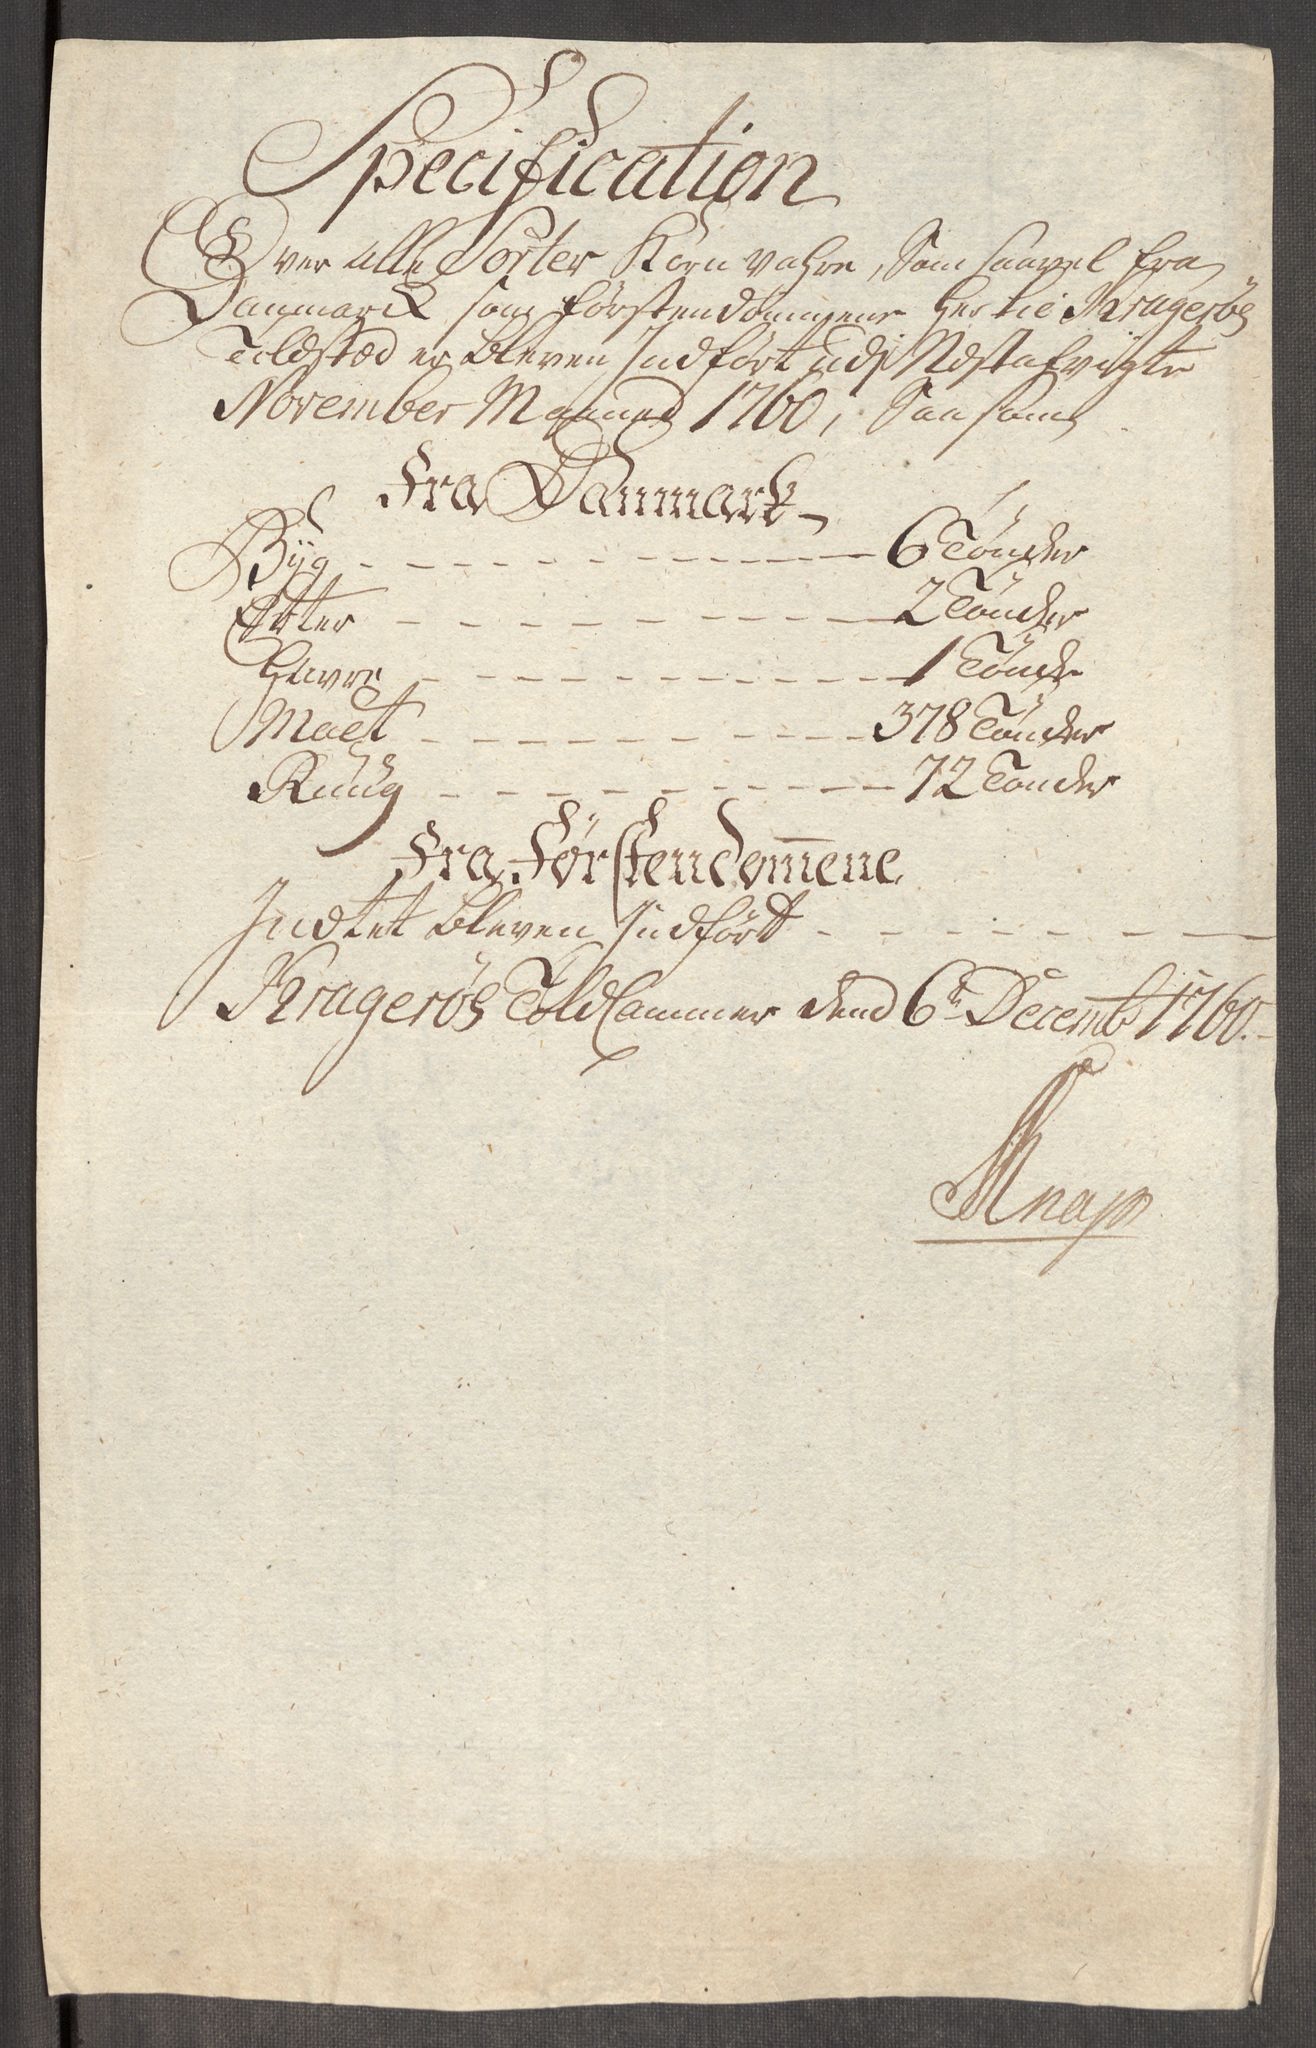 Specification
Over alle Sorter Korn vahre, Som saavel fra
Danmarck som førstendommene her til Kragerøes
Toldsted er bleven Indført udj Nest afvigte
November Maaned 1760, Saasom
Fra Danmark
Byg - - - - - - - - - 6 Tønder
Erter - - - - - - - - - 2 Tønder
Havre - - - - - - - - - 1 Tønde
Malt - - - - - - - - - 378 Tønder
Ruug - - - - - - - - - 72 Tønder
Fra Førstendom̄ene
Indtet bleven Indført - - - - - -
Kragerøes Told Cammer dend 6te Decembr 1760.
Knap